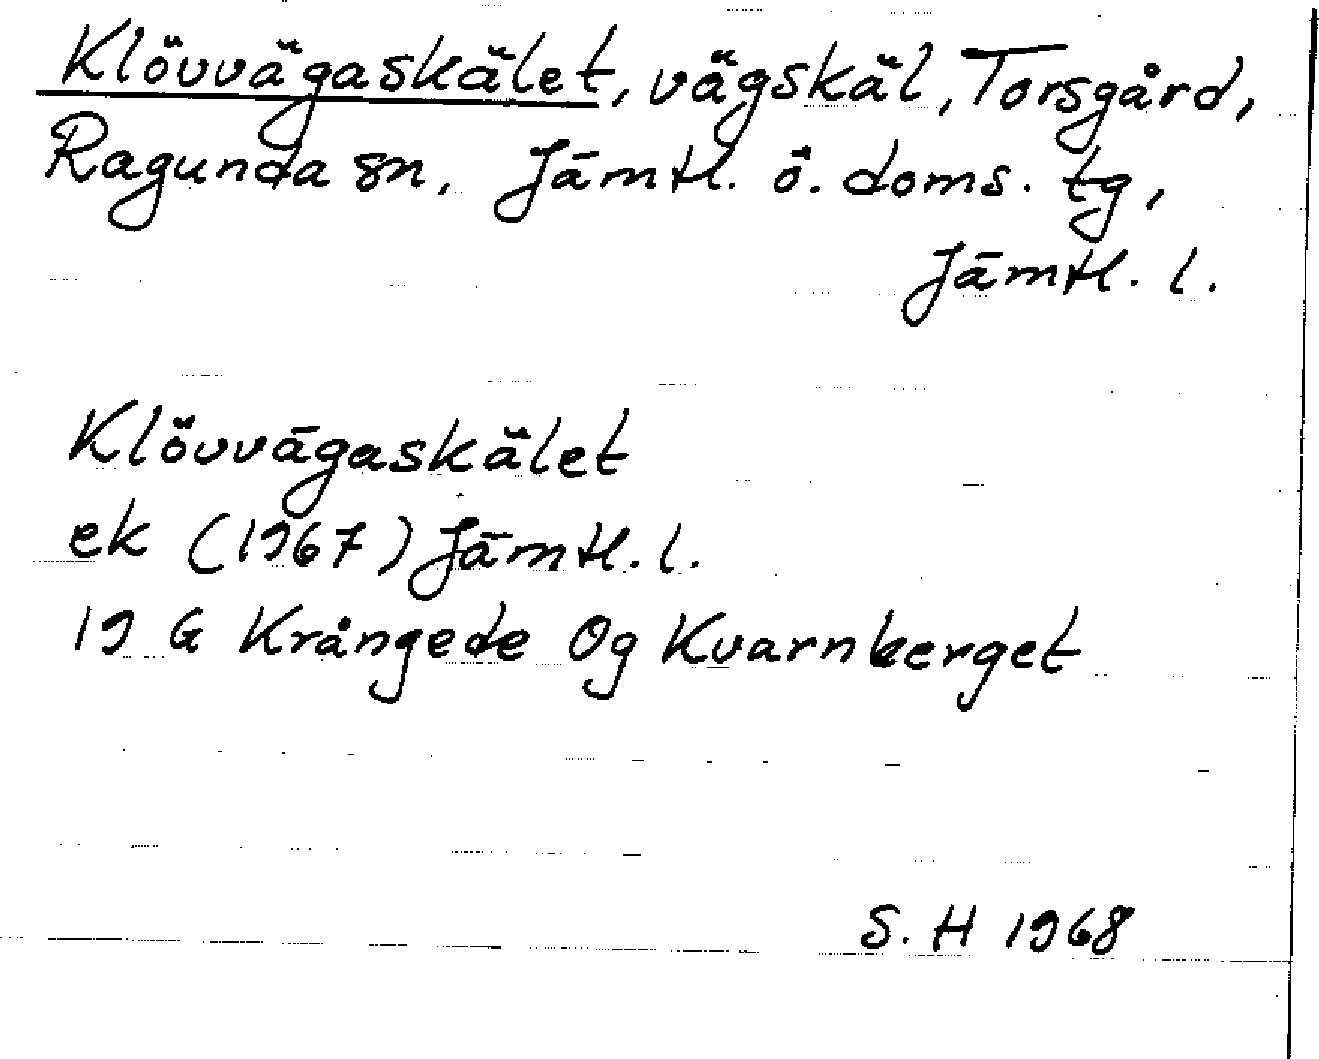 Klövvägaskälet, vägskäl, Torsgård,
Ragunda sn, Jämtl. ö. doms. tg,
Jämtl. l.
Klövvägaskälet
ek (1967) Jämtl. l.
19 G Krångede 0g Kvarnberget
S. H 1968